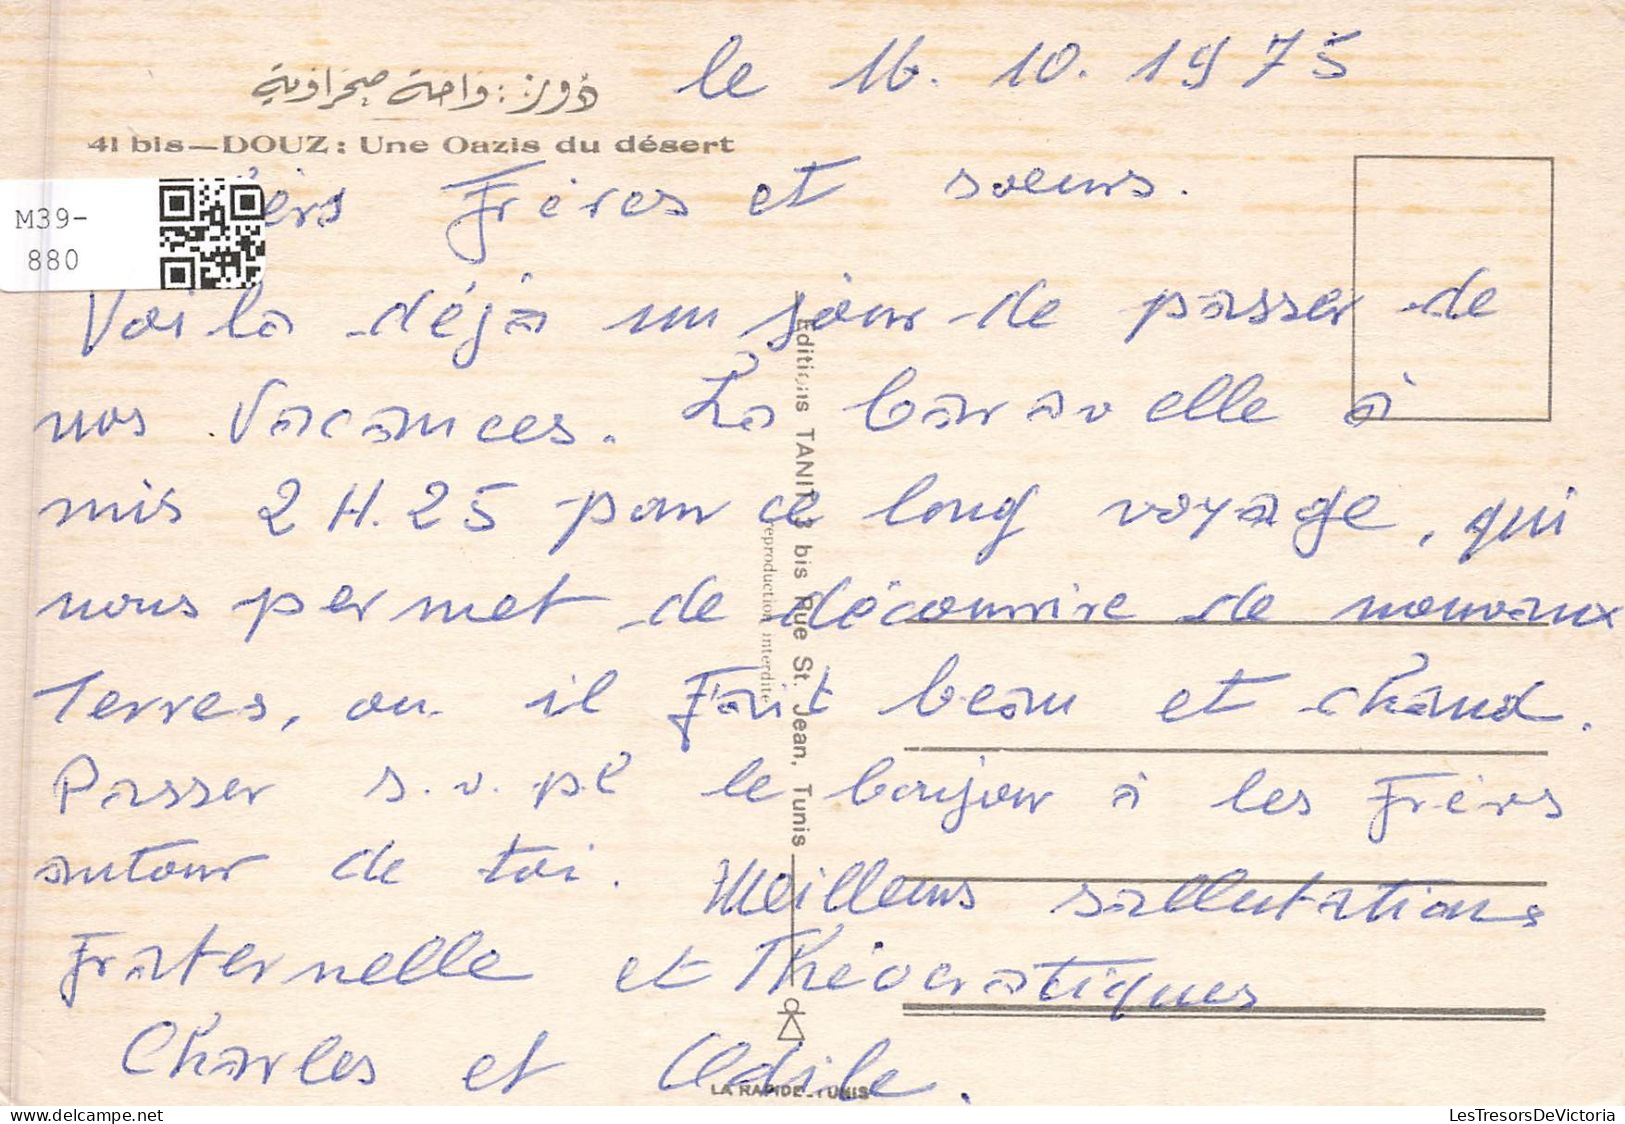 le 16. 10. 1975
دوز : واحة صحراوية
41 bis—DOUZ : Une Oazis du désert
M39-
880
Frères et soeurs.
Voila déjà un jour de passer de
nos Vacances. La Caravelle à
mis 2 H. 25 pour ce long voyage, qui
nous permet de découvrire de nouvaux
Terres, ou il Fait beau et chaud.
Passer s.v.pl le bonjour à les Frères
autour de toi. Meilleurs sallutations
Fraternelle et Théocratiques
Charles et Odile.
Editions TANIT 3 bis Rue St. Jean, Tunis
Reproduction interdite
LA RAPIDE_TUNIS
LesTresorsDeVictoria